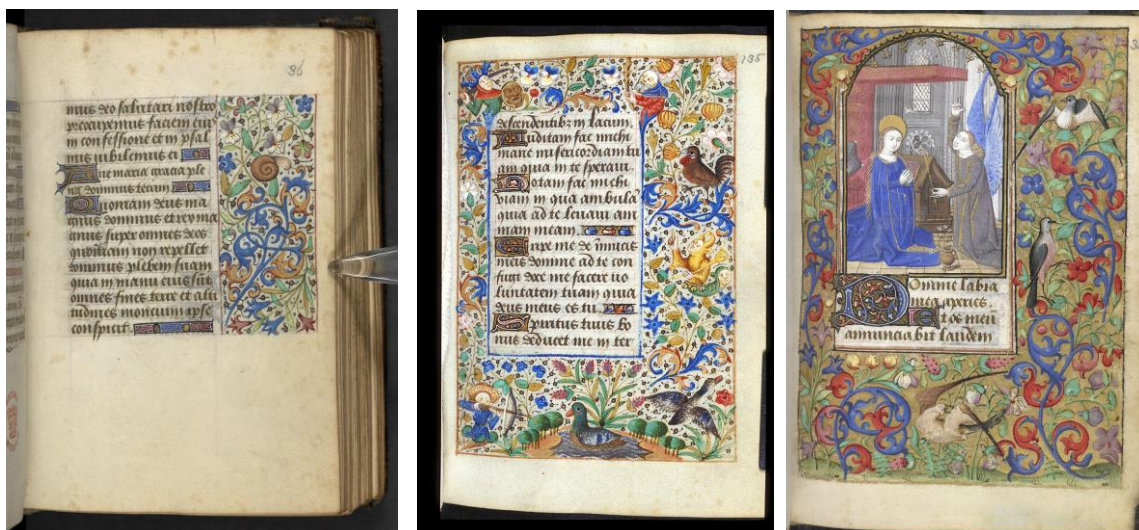 mus deo salutari nostro
preocupemus faciem eius
in confessione et in psal
mis iubilemus ei
Aue maria gracia ple
na dominus tecum
Quoniam deus ma
gnus dominus et rex ma
gnus super omnes deos
quoniam non repellet
dominus plebem suam
quia in manu eius sūt
omnes fines terre et alti
tudines moncium ipse
conspicit
135
descendentibz in lacum
Auditam fac michi
mane misericordiam tu
am quia in te speraui
Notam fac michi
viam in qua ambulē
quia ad te leuaui ani
mam meam
Eripe me de inimicis
meis domine ad te con
fugi doce me facere uo
luntatem tuam quia
deus meus es tu
Spiritus tuus bo
nus deducet me in ter
Domine labia
mea aperies
Et os meū
annunciabit laudem